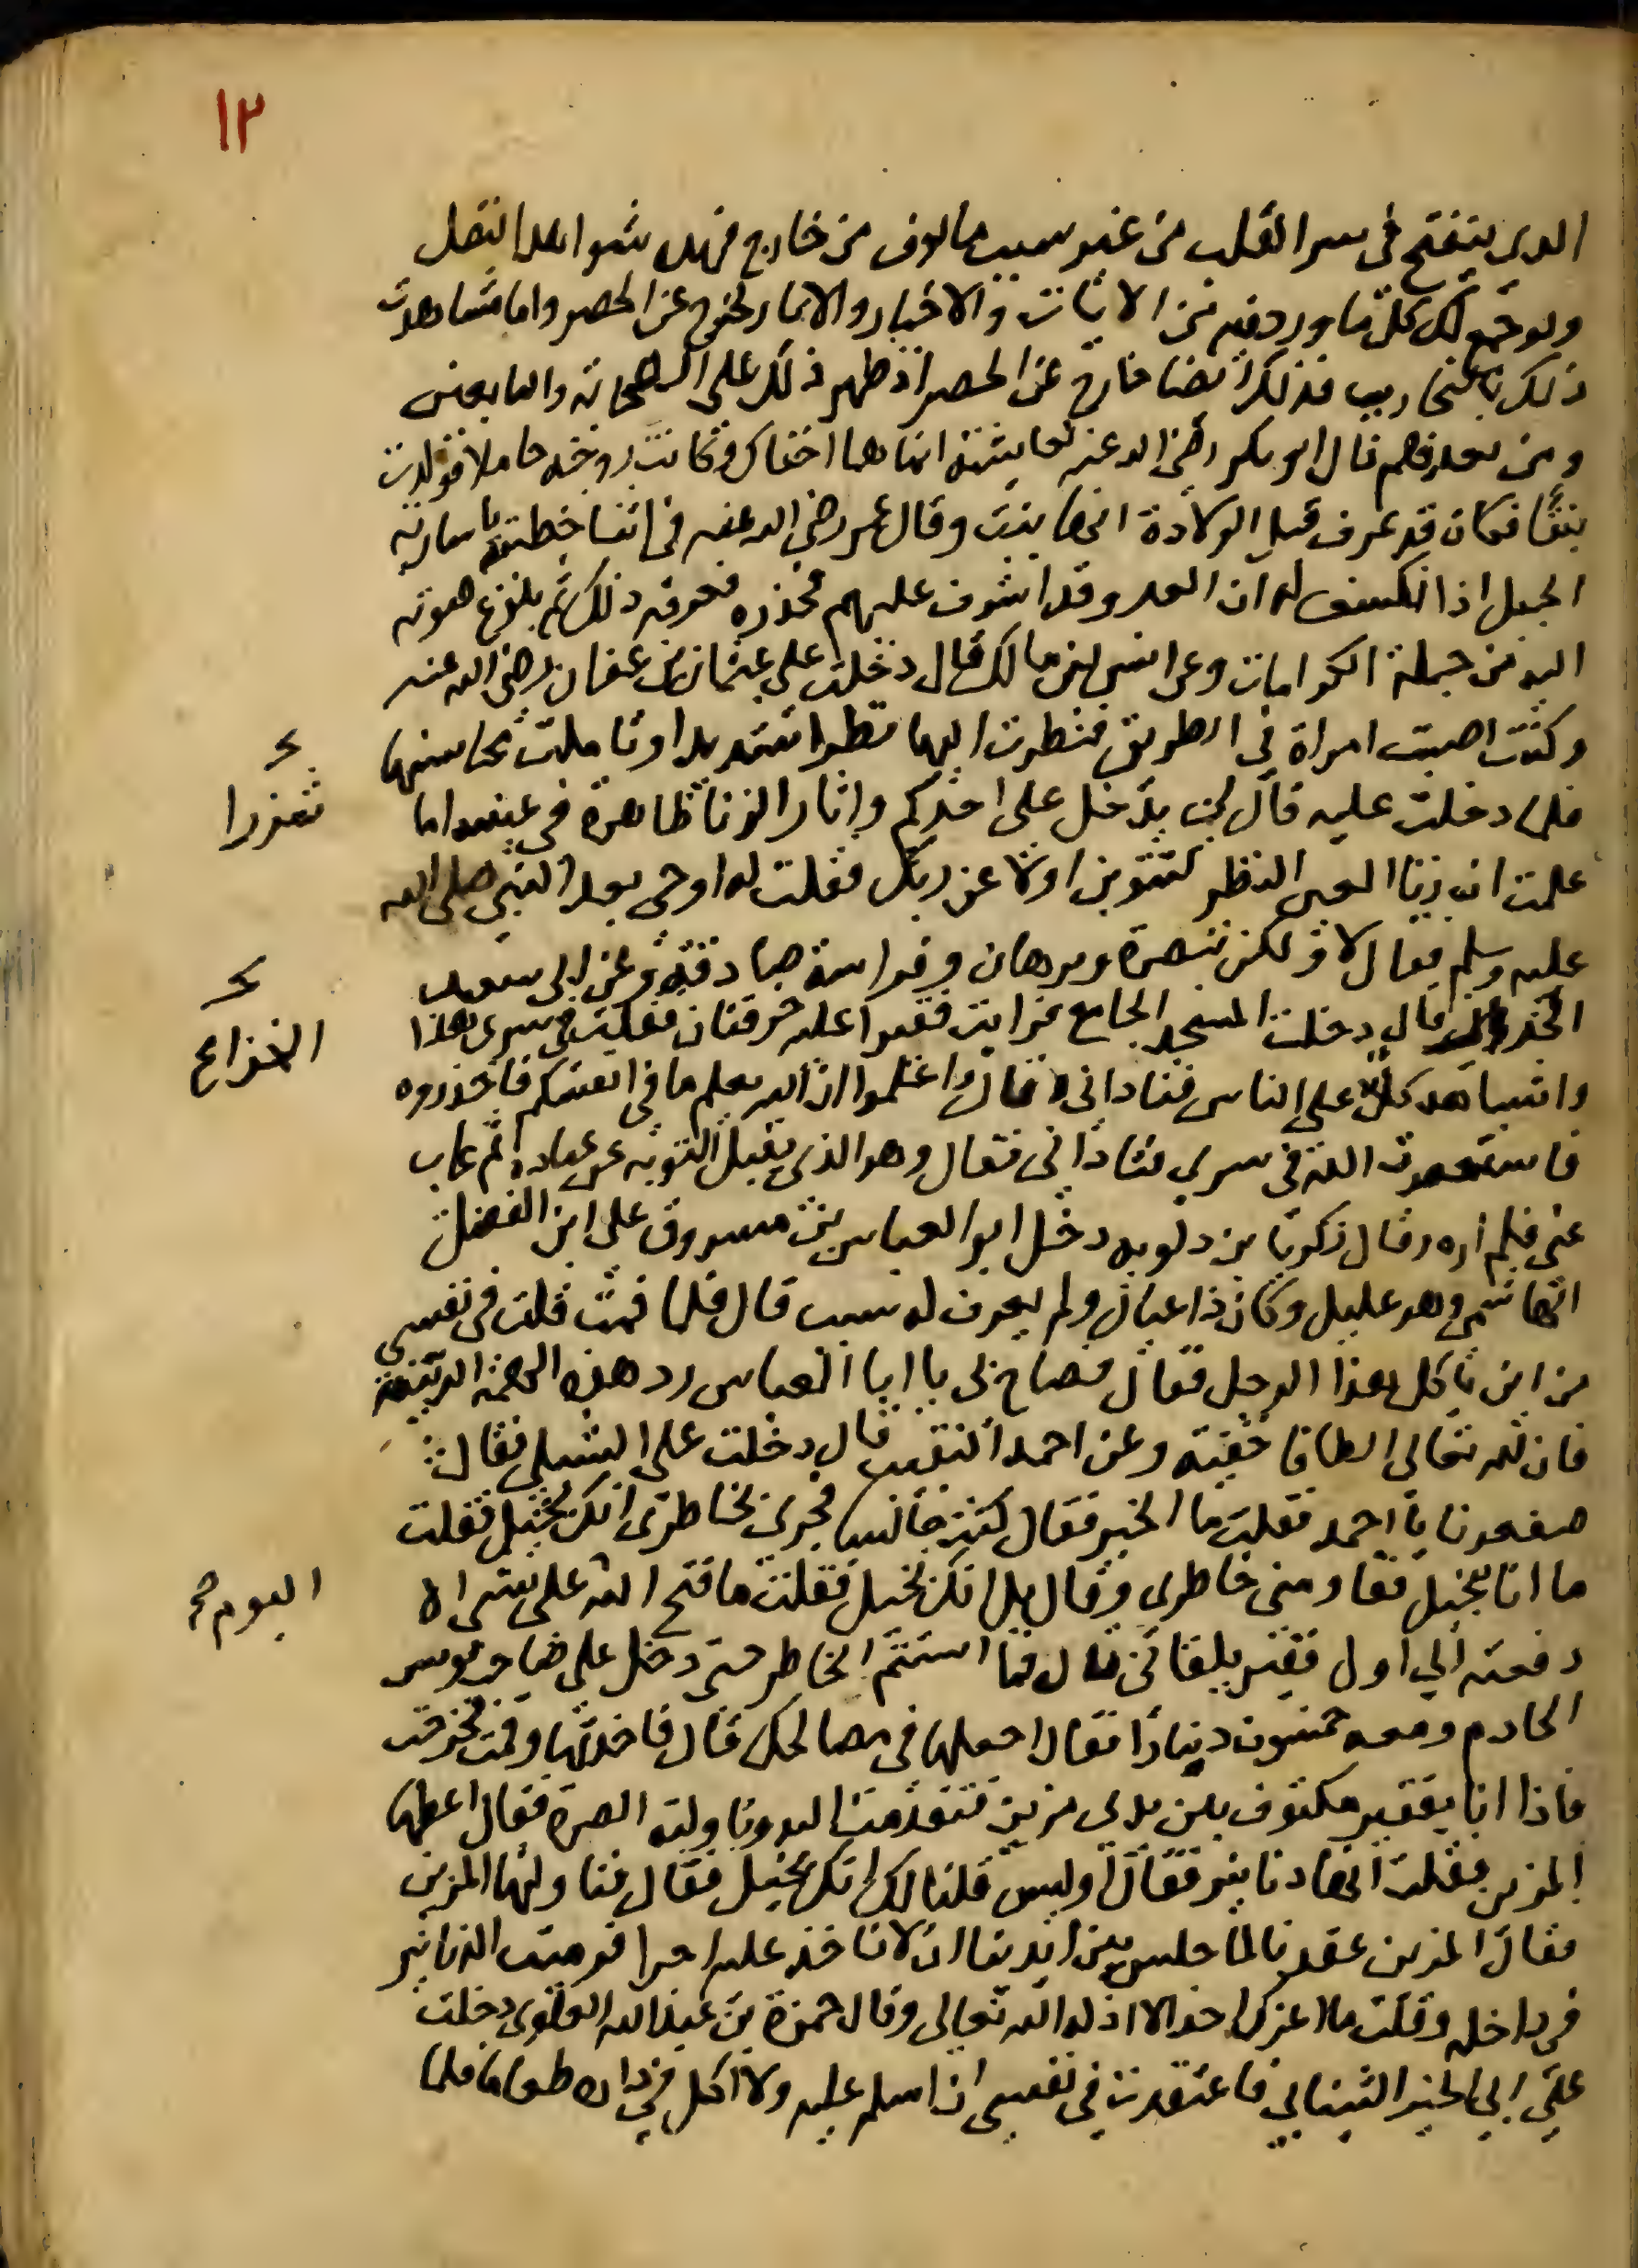 ١٢
الذي ينفتح في سر القلب من غير سبب مالوف من خارج فهذه شواهد النقل
ولو جمع كل ما ورد فيه من الايات والاخبار والاثار لخرج عن الحصر واما مشاهدة
ذلك بالتجارب فذلك ايضا خارج عن الحصر اذ ظهر ذلك على الصحابة والتابعين
ومن بعدهم قال ابو بكر رضي الله عنه لعايشة انما هما اختاك وكانت زوجته حاملا فولدت
بنتا فكان قد عرف قبل الولادة انها بنت وقال عمر رضي الله عنه في اثنا خطبته يا سارية
الجبل اذا انكشف له ان العدو قد اشرف عليهم فحذره فعرفه ذلك ثم بلوغ صوته
اليه من جملة الكرامات وعن انس بن مالك قال دخلت على عثمان بن عفان رضي الله عنه
وكنت اصبت امراة في الطريق فنظرت اليها نظرا شديدا وتاملت محاسنها
فلما دخلت عليه قال لي يدخل علي احدكم واثار الزنا ظاهرة في عينيه اما
علمت ان زنا العين النظر لتتوبن اولا عن ربك فقلت له اوحي بعد النبي صلى الله
عليه وسلم فقال لا ولكن تبصرة وبرهان وفراسة صادقة وعن ابي سعيد
قال دخلت المسجد الجامع فرايت فقيرا عليه خرقتان فقلت في سري هذا
واشباهه كلا على الناس فناداني وقال واعلموا ان الله يعلم ما في انفسكم فاحذروه
فاستغفرت الله في سري فناداني فقال وهو الذي يقبل التوبة عن عباده ثم غاب
عني فلم اره وقال زكريا بن دلويه دخل ابو العباس بن مسروق على ابن الفضل
الهاشمي وهو عليل وكان ذا عيال ولم يعرف له سبب قال فلما قمت قلت في نفسي
من اين ياكل هذا الرجل فقال فصاح لي يا ابا العباس رد هذه الهمة الدنية
فان لله تعالى الطافا خفية وعن احمد النقيب قال دخلت على الشبلي فقال
يا احمد فقلت ما الخبر فقال كنت جالسا فجرى بخاطري انك بخيل فقلت
ما انا بخيل فعاد مني خاطري وقال بل انك بخيل فقلت ما فتح الله علي بشي الا
دفعته الي اول فقير يلقاني قال فما استتم الخاطر حتى دخل علي صاحب
الخادم ومعه خمسون دينارا فقال اجعلها في مصالحك قال فاخذتها وقمت فخرجت
فاذا انا بفقير مكفوف بين يدي مزين فتقدمت اليه وناولته الصرة فقال اعطها
المزين فقلت انها دنانير فقال اوليس قلنا لك انك بخيل فقال فناولتها المزين
فقال المزين عقدنا لما جلس بين ايدينا ان لا ناخذ عليه اجرا فرميت الدنانير
في دجله وقلت ما اعزك احد الا اذله الله تعالى وقال حمزة بن عبد الله العلوي دخلت
على ابي الخير التيناني فاعتقدت في نفسي ان اسلم عليه ولا اكل في داره طعاما فلما
شزرا
الخراز
اليوم